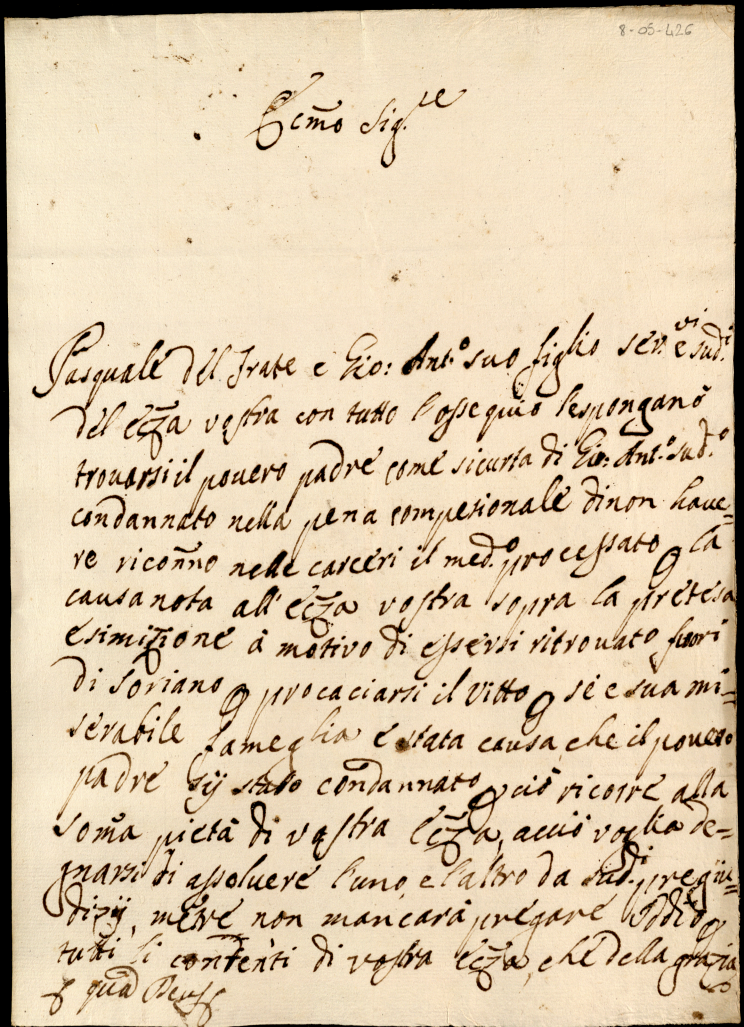 8-05-426
Eccmo Sig.re
Pasquale Del Frate e Gio: Ant.o suo figlio ser.vi e sud.i
del Ecza vostra con tutto l'ossequio l'espongano
trovarsi il povero padre come sicurta di Gio: Ant.o sud.o
condannato nella pena compesionale di non have=
re riconño nelle carceri il med.o processato p la
causa nota all'Ecza vostra sopra la pretesa
esimizione à motivo di essersi ritrovato fuori
di Soriano p procaciarsi il vitto p sé e sua mi=
serabile fameglia è stata causa che il povero
padre sij stato condannato p ciò ricorre alla
soma pietà di vostra Ecza, acciò voglia de=
gnarsi di assolvere l'uno, e l'altro da sud.i pregiu=
dizij, mere non mancarà pregare Iddio p
tutti li contenti di vostra Ecza, che della grazia
quã Deus